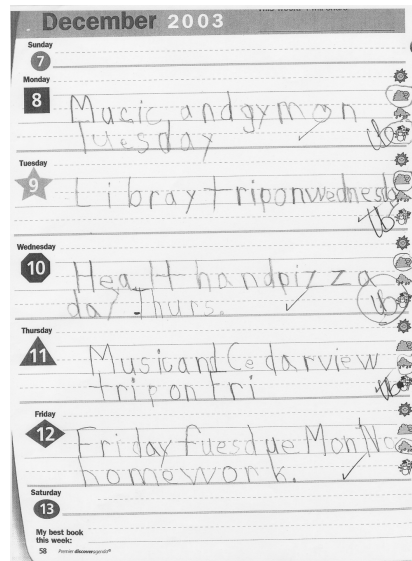 December 2003
Sunday
7
Monday
8
Music and gym on
Tuesday
Tuesday
9
Libray trip on wednesday
Wednesday
10
Healt h and pizza
day Thurs.
Thursday
11
Music and Cedarview
trip on Fri
Friday
12
Friday fues due Mon No
homework.
Saturday
13
My best book
this week:
58 Premier discoveragenda®